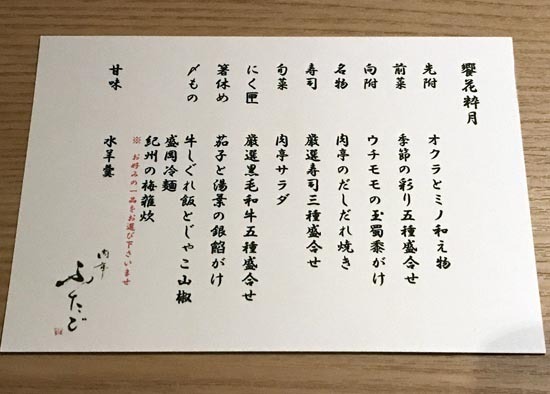 饗花粋月
光附 オクラとミノ和え物
前菜 季節の彩り五種盛合せ
向附 ウチモモの玉蜀黍がけ
名物 肉亭のだしだれ焼き
寿司 厳選寿司三種盛合せ
旬菜 肉亭サラダ
にく匣 厳選黒毛和牛五種盛合せ
箸休め 茄子と湯葉の銀餡がけ
〆もの 牛しぐれ飯とじゃこ山椒
盛岡冷麺
紀州の梅雑炊
※ お好みの一品をお選び下さいませ
甘味 水羊羹
肉亭
ふたご